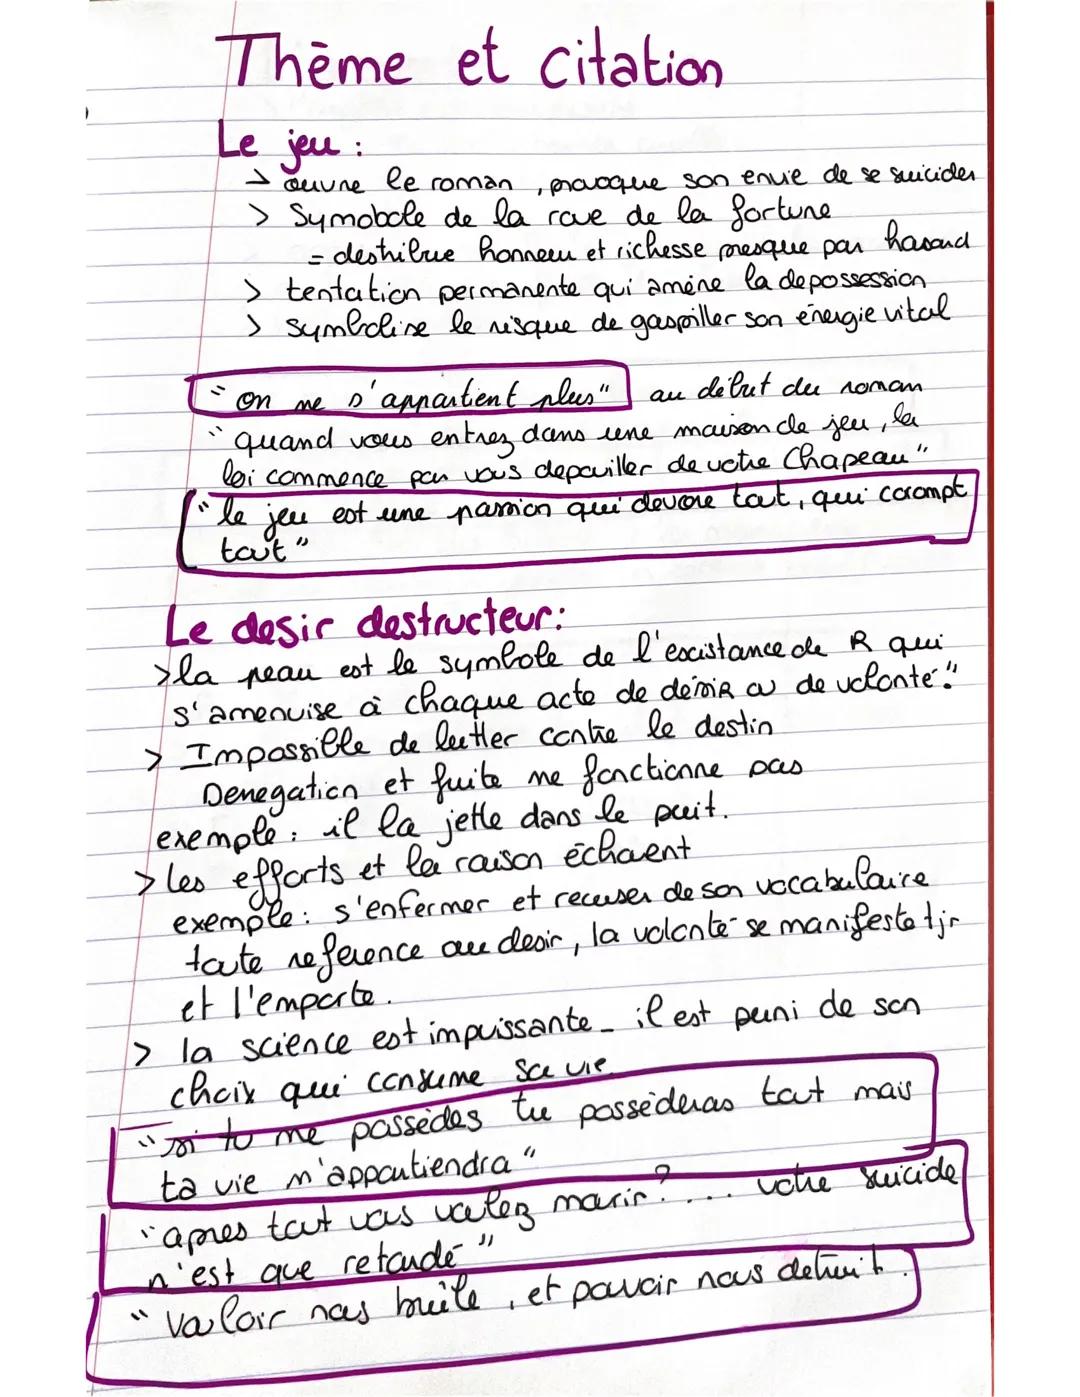 Thème et citation
Le jeu :
→ ouvre le roman, provoque son envie de se suicider
> Symobole de la roue de la fortune
= destribue honneur et richesse presque par hasard
> tentation permanente qui amène la depossession
> symbolise le risque de gaspiller son énergie vital
"on ne s'appartient plus" au début du roman
"quand vous entrez dans une maison de jeu, la
loi commence par vous depouiller de votre Chapeau"
"le jeu est une passion qui devore tout, qui corompt
tout"
Le desir destructeur:
> la peau est le symbole de l'existance de R qui
s'amenuise à chaque acte de désir ou de volonté."
> Impossible de lutter contre le destin
Denegation et fuite ne fonctionne pas
exemple : il la jette dans le puit.
> les efforts et la raison échouent
exemple : s'enfermer et recuser de son vocabulaire
toute reference au desir, la volonté se manifeste tjr
et l'emporte.
> la science est impuissante _ il est puni de son
choix qui consume sa vie
"si tu me possèdes tu possèderas tout mais
ta vie m'appartiendra"
"apres tout vous voulez mourir ? ... votre suicide
n'est que retardé"
"Valoir nous brûle, et pouvoir nous detruit.